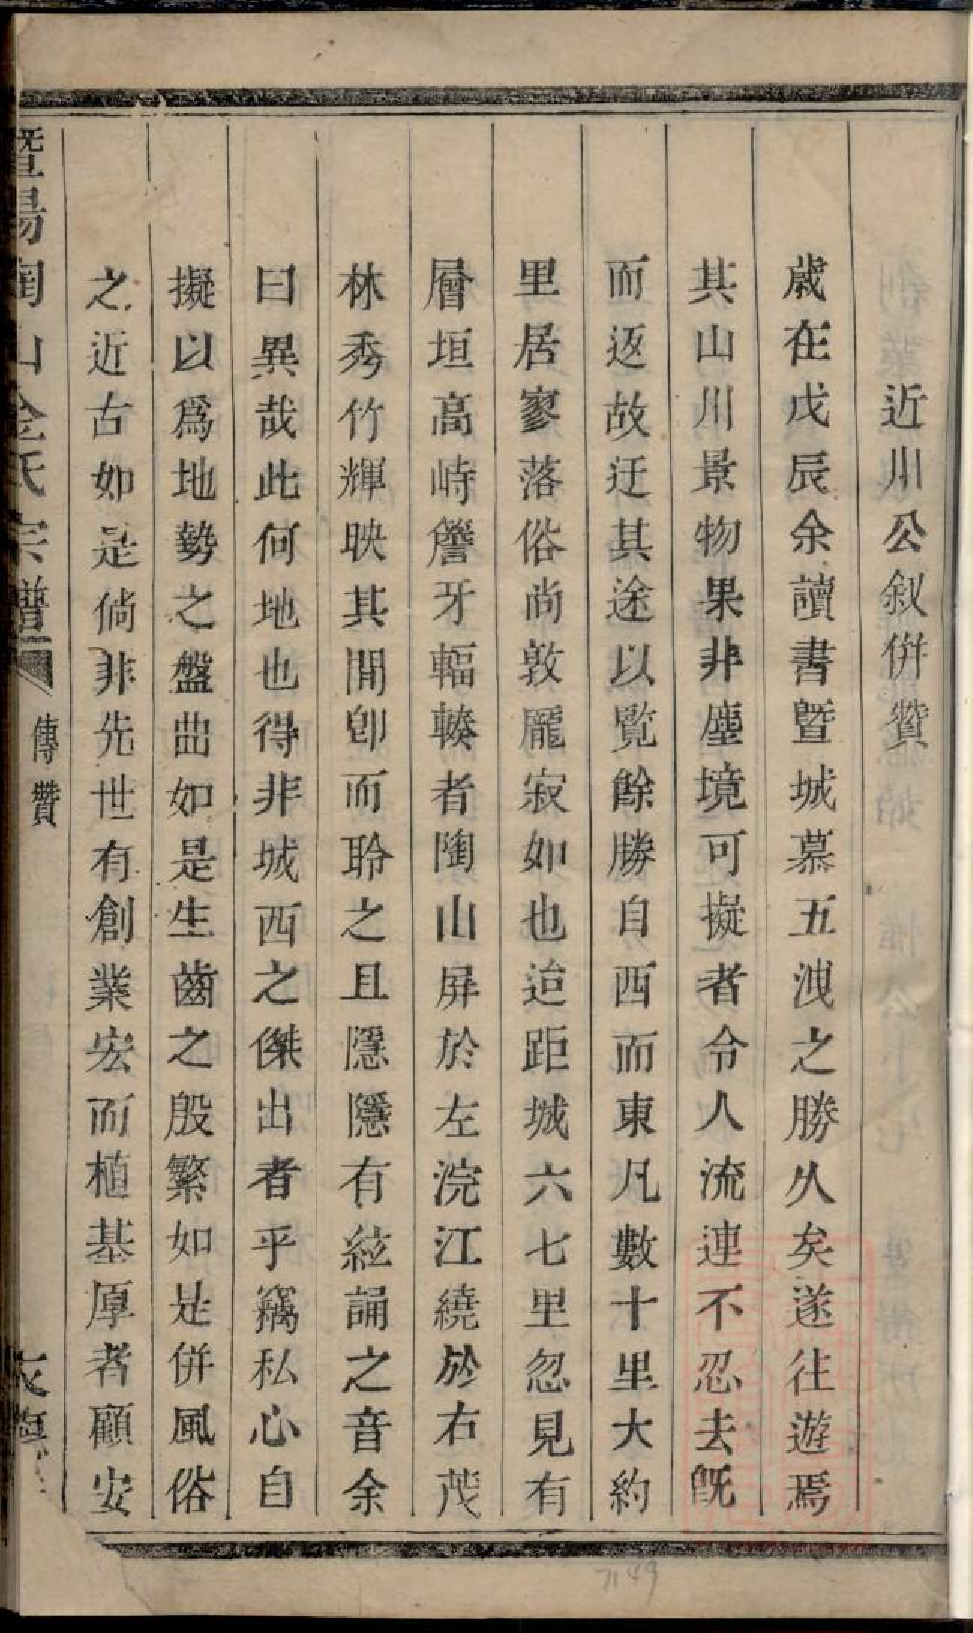 近川公叙併贊
歲在戊辰余讀書曁城慕五洩之勝久矣遂往遊焉
其山川景物果非塵境可擬者令人流連不忍去旣
而返故迂其途以覧餘勝自西而東凡數十里大約
里居寥落俗尚敦龐寂如也迨距城六七里忽見有
層垣高峙簷牙輻輳者陶山屏於左浣江繞於右茂
林秀竹輝映其間卽而聆之且隱隱有絃誦之音余
曰異哉此何地也得非城西之傑出者乎竊私心自
擬以爲地勢之盤曲如是生齒之殷繁如是併風俗
之近古如是倘非先世有創業宏而植基厚者顧安
曁陽陶山金氏宗譜
傳贊